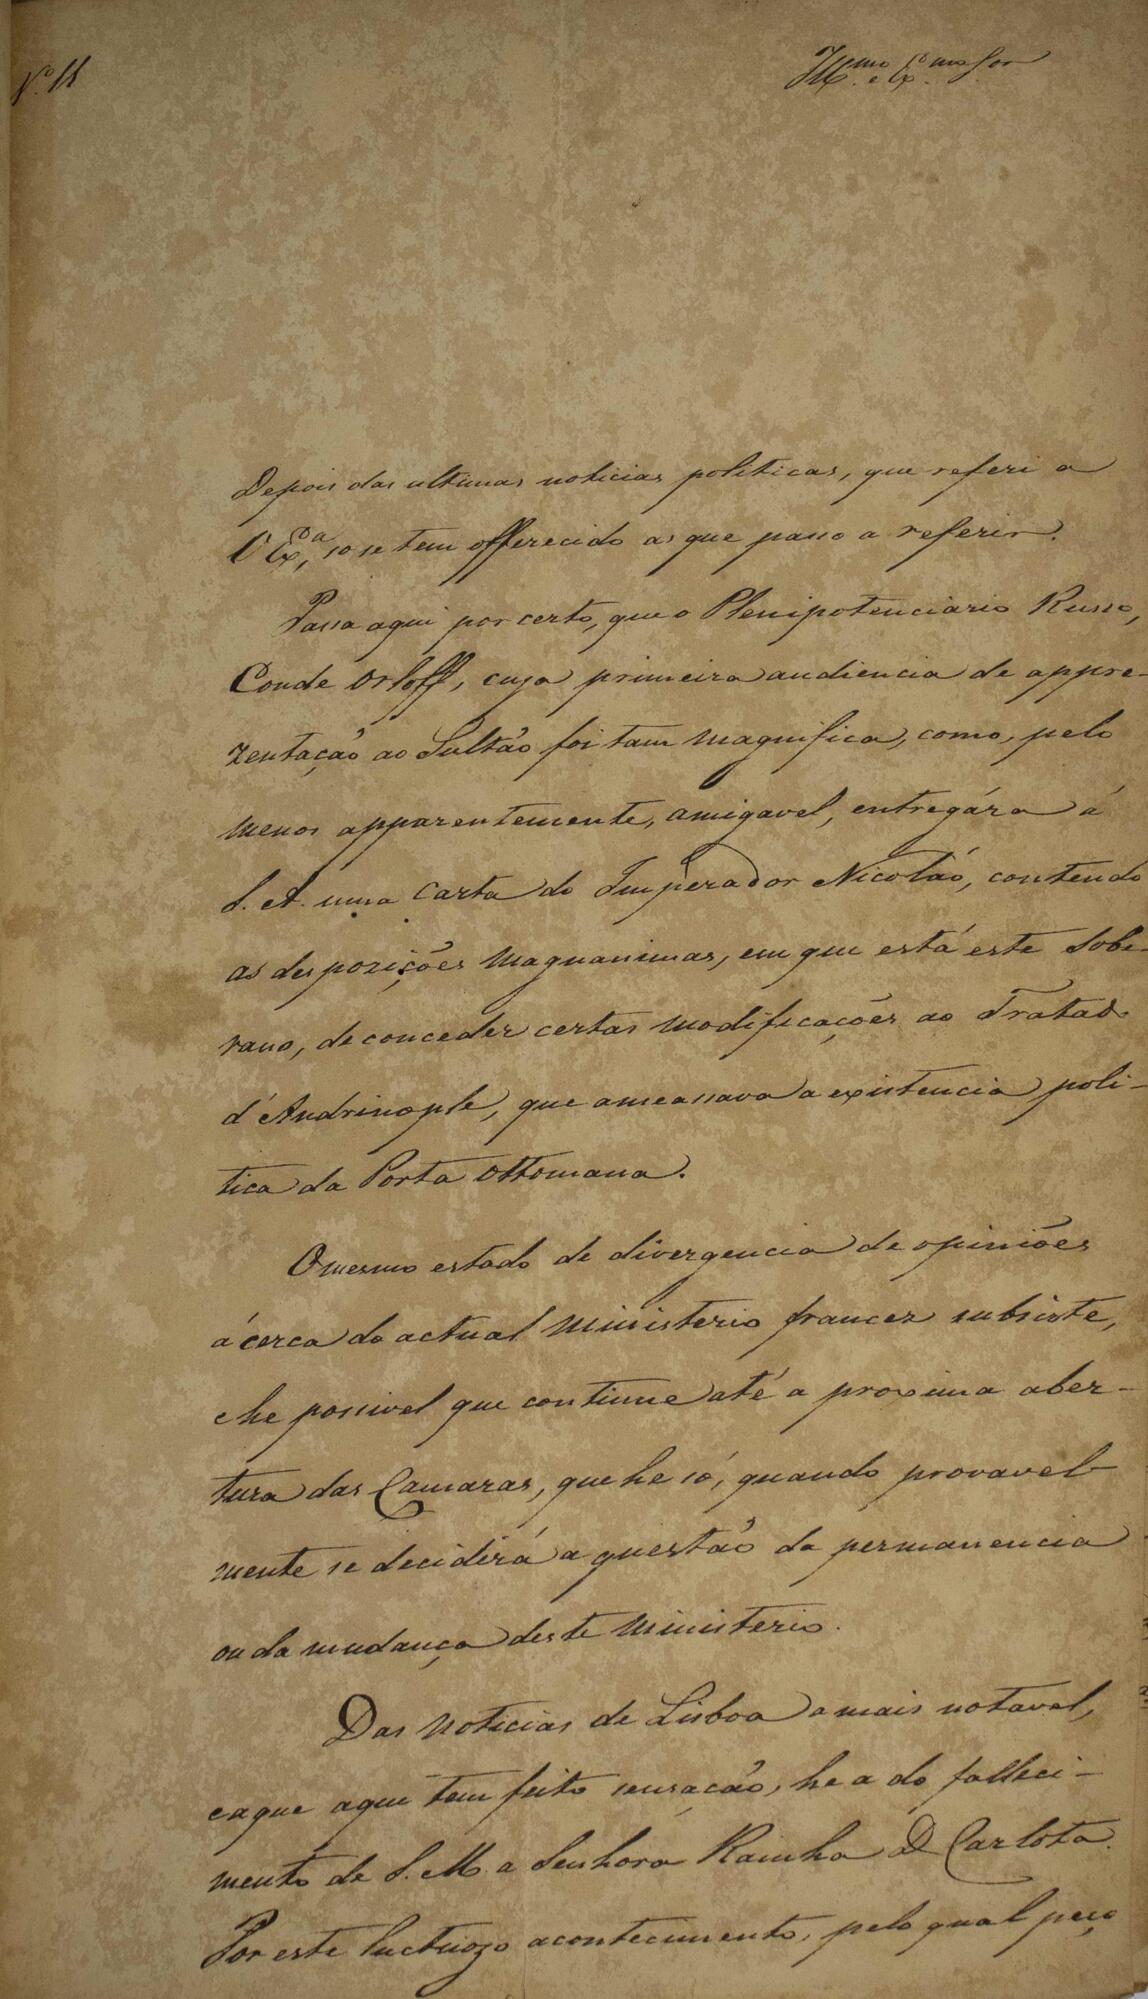 Nº 11
Illmo. e Exmo. Sor
Depois das ultimas noticias politicas, que referi a
V Exa, so se tem offerecido as que passo a referir.
Passa aqui por certo, que o Plenipotenciario Russo,
Conde Orloff, cuja primeira audiencia de appre-
zentação ao Sultão foi tam magnifica, como, pelo
menos apparentemente, amigavel, entregára á
S. A. uma carta do Imperador Nicoláo, contendo
as desposições magnanimas, em que está este Sobe-
rano, de conceder certas modificações ao Tratado
d'Andrinople, que ameassava a existencia poli-
tica da Porta Ottomana.
O mesmo estado de divergencia de opiniões
ácerca do actual Ministerio francez subsiste,
e he possivel que continue até a proxima aber-
tura das Camaras, que he só, quando provavel-
mente se decidirá a questão da permanencia
ou da mudança deste Ministerio.
Das noticias de Lisboa a mais notavel,
e a que aqui tem feito sensação, he a do falleci-
mento de S. M. a Senhora Rainha D Carlota.
Por este luctuozo acontecimento, pelo qual peço